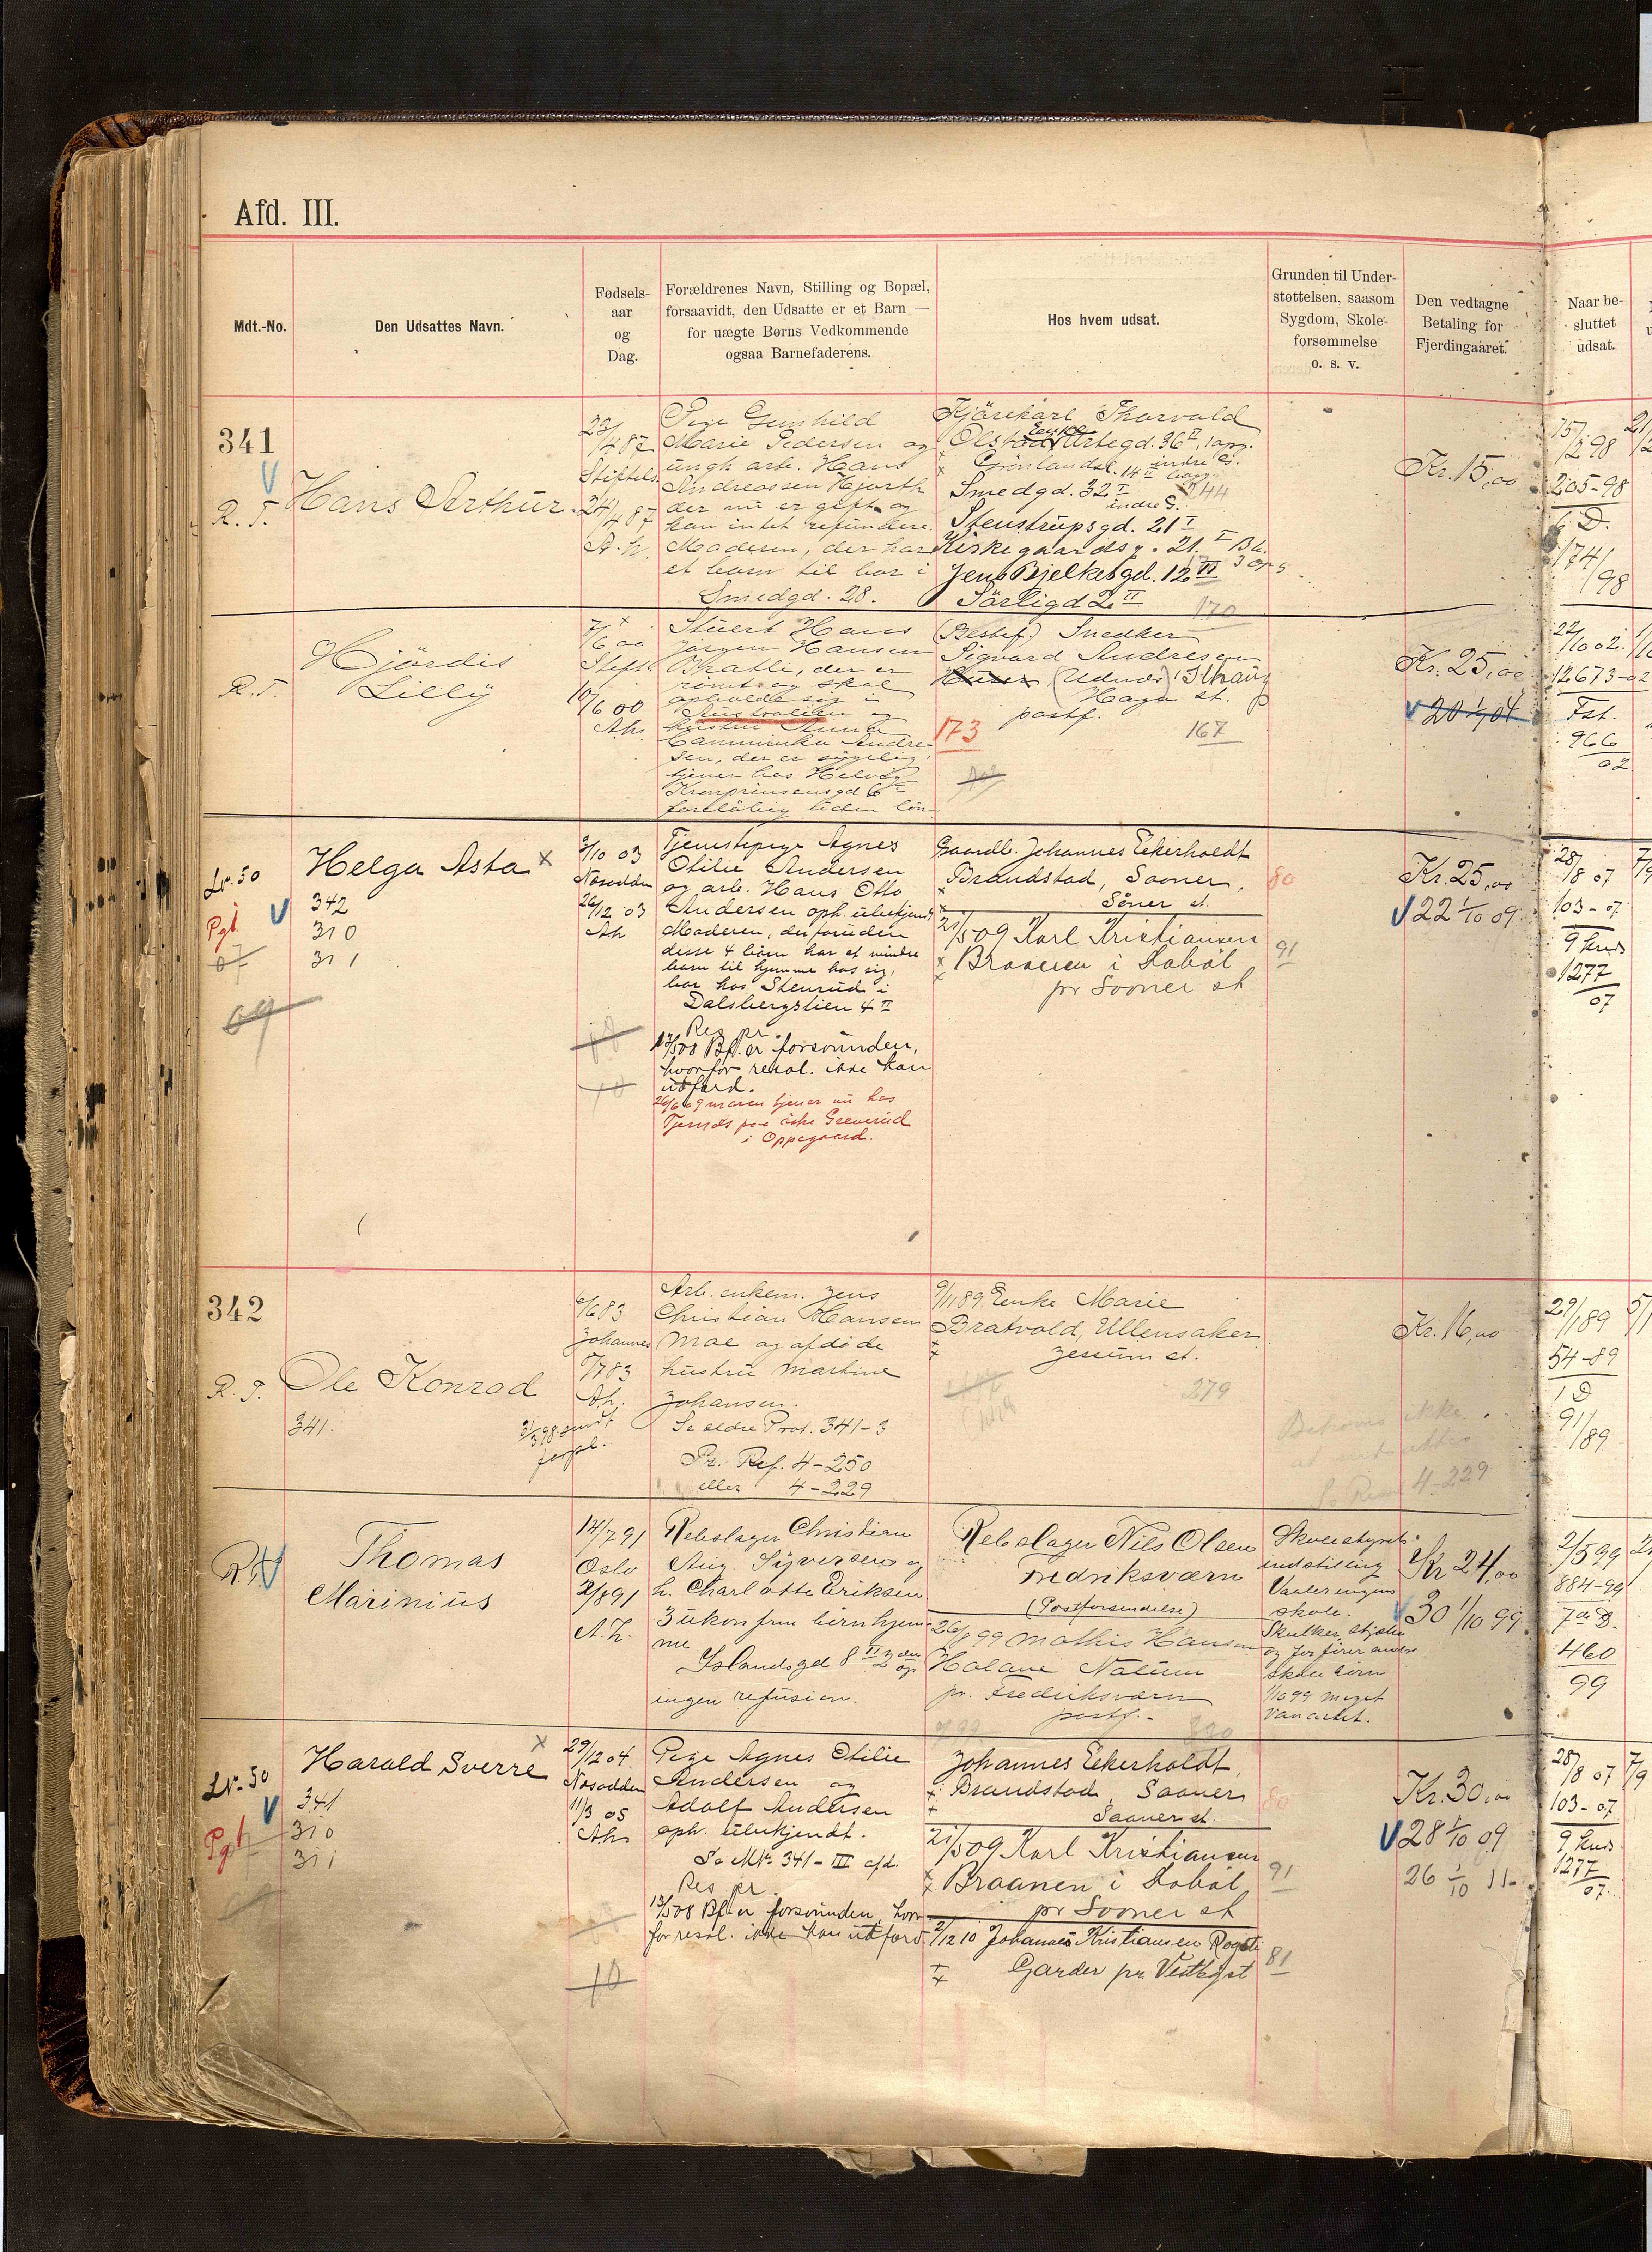 Afd. III.
Mdt.-No.
Den Udsattes Navn.
Fødsels-
aar
og
Dag.
Forældrenes Navn, Stilling og Bopæl,
forsaavidt, den Udsatte er et Barn —
for uægte Børns Vedkommende
ogsaa Barnefaderens.
Hos hvem udsat.
Grunden til Under-
støttelsen, saasom
Sygdom, Skole-
forsømmelse
o. s. v.
Den vedtagne
Betaling for
Fjerdingaaret.
Naar be-
sluttet
udsat.
341
R. T.
Hans Arthur
23/4 87
Stiftels.
24/4 87
A. h.
Pige Gunhild
Marie Pedersen og
ungk. arb. Hans
Andreassen Hjorth
der nu er gift og
kan intet refundere
Moderen, der har
et barn til bor i
Smedgd. 28.
Kjörekarl Thorvald
Urtegd. 36 I, 1 opg.
Grönlandsl. 14 II
Smedgd. 32 I
indre G.
Stenstrupsgd. 21 I
Kirkegaardsg. 21. I
Jens Bjelkesgd. 12 III 3 opg
Sörligd 2 II
170
Kr. 15,00
15/2 98
205-98
D.
174/98
R. T.
Hjördis
Lilly
7/6 00
Stift.
10/6 00
Ah.
Stuert Hans
Jörgen Hansen
Bratli, der er
römt og skal
opholde sig i
Australien og
hustru Anna
Andre-
sen, der er sygelig,
tjener hos
Kronprinsensgd 6
foreløbig uden lön
(Bestef.) Snedker
Sigvard Andresen
Haga st.
postf.
173
167
Kr. 25,00
20 1/1 04
22/10 02
12673-02
Fst.
966
02
Lr. 50
Pgt.
07
69
Helga Asta x
342
310
311
3/10 03
Næsodden
26/12 03
Ah
Tjenestepige Agnes
Otilie Andersen
og arb. Hans Otto
Andersen oph. ubekjendt
Moderen, der foruden
disse 4 börn har et mindre
barn til hjemme hos sig,
bor hos Stenrud i
Dalsbergstien 4 II
Res pr.
13/5 08 Bf. er forsvunden,
hvorfor resol. ikke kan
utfærd.
26/6 09 moren tjener nu hos
Greverud
i Oppegaard.
Gaardb. Johannes Eikerholdt
Brandstad, Sooner,
Sóner st.
21/5 09 Karl Kristiansen
Braanen i Hobøl
pr Sooner st
80
91
Kr. 25,00
22 1/10 09
28/8 07
103-07
9 knd
1277
07
342
R. T.
Ole Konrad
341.
6/6 83
Johannes
8/7 83
Ah.
Arb. enkem. Jens
Christian Hansen
Moe og afdöde
hustru Martine
Johansen.
Se eldre Prot. 341-3
Pr. Ref. 4-250
eller 4-229
9/11 89 Enke Marie
Bratvold, Ullensaker
Jessum st.
279
Behöves ikke
4-229
Kr. 16,00
29/1 89
54-89
1 D
91/89
Thomas
Marinius
14/7 91
Oslo
2/8 91
A. h.
Rebslager Christian
Aug. Sigversen og
h. Charlotte Eriksen
3 ukonfirm. börn hjem-
me
Islandsgd 8 II 2den
op.
ingen refusion.
Rebslager Nils Olsen
Fredriksværn
(Postforsendelse)
26/8 99 Mathis Hansen
Holane Nalum
pr. Fredriksværn
postf.
Skolestyrets
indstilling
Vaalerengens
skole.
Skulker, stjæler
og forfører andre
skolebörn
1/10 99 meget
vanartet.
Kr 24,00
30 1/10 99
2/5 99
884-99
7de D.
460
99
Lr. 50
Pgt
Harald Sverre x
341
310
311
29/12 04
Næsodden
11/3 05
Ah
Pige Agnes Otilie
Andersen og
Adolf Andersen
oph. ubekjendt.
Se Mk. 341-III afd.
Res pr.
13/5 08 Bf. er forsvunden, hvor-
for resol. ikke kan utfærd.
10
Johannes Eikerholdt,
Brandstad, Saaner
Saaner st.
21/5 09 Karl Kristiansen
Braanen i Hobøl
pr Sooner st
2/12 10 Johannes Kristiansen
Garder pr. Vestby st
80
91
81
Kr. 30,00
28 1/10 09
26 1/10 11
28/8 07
103-07
9 knd
1277
07